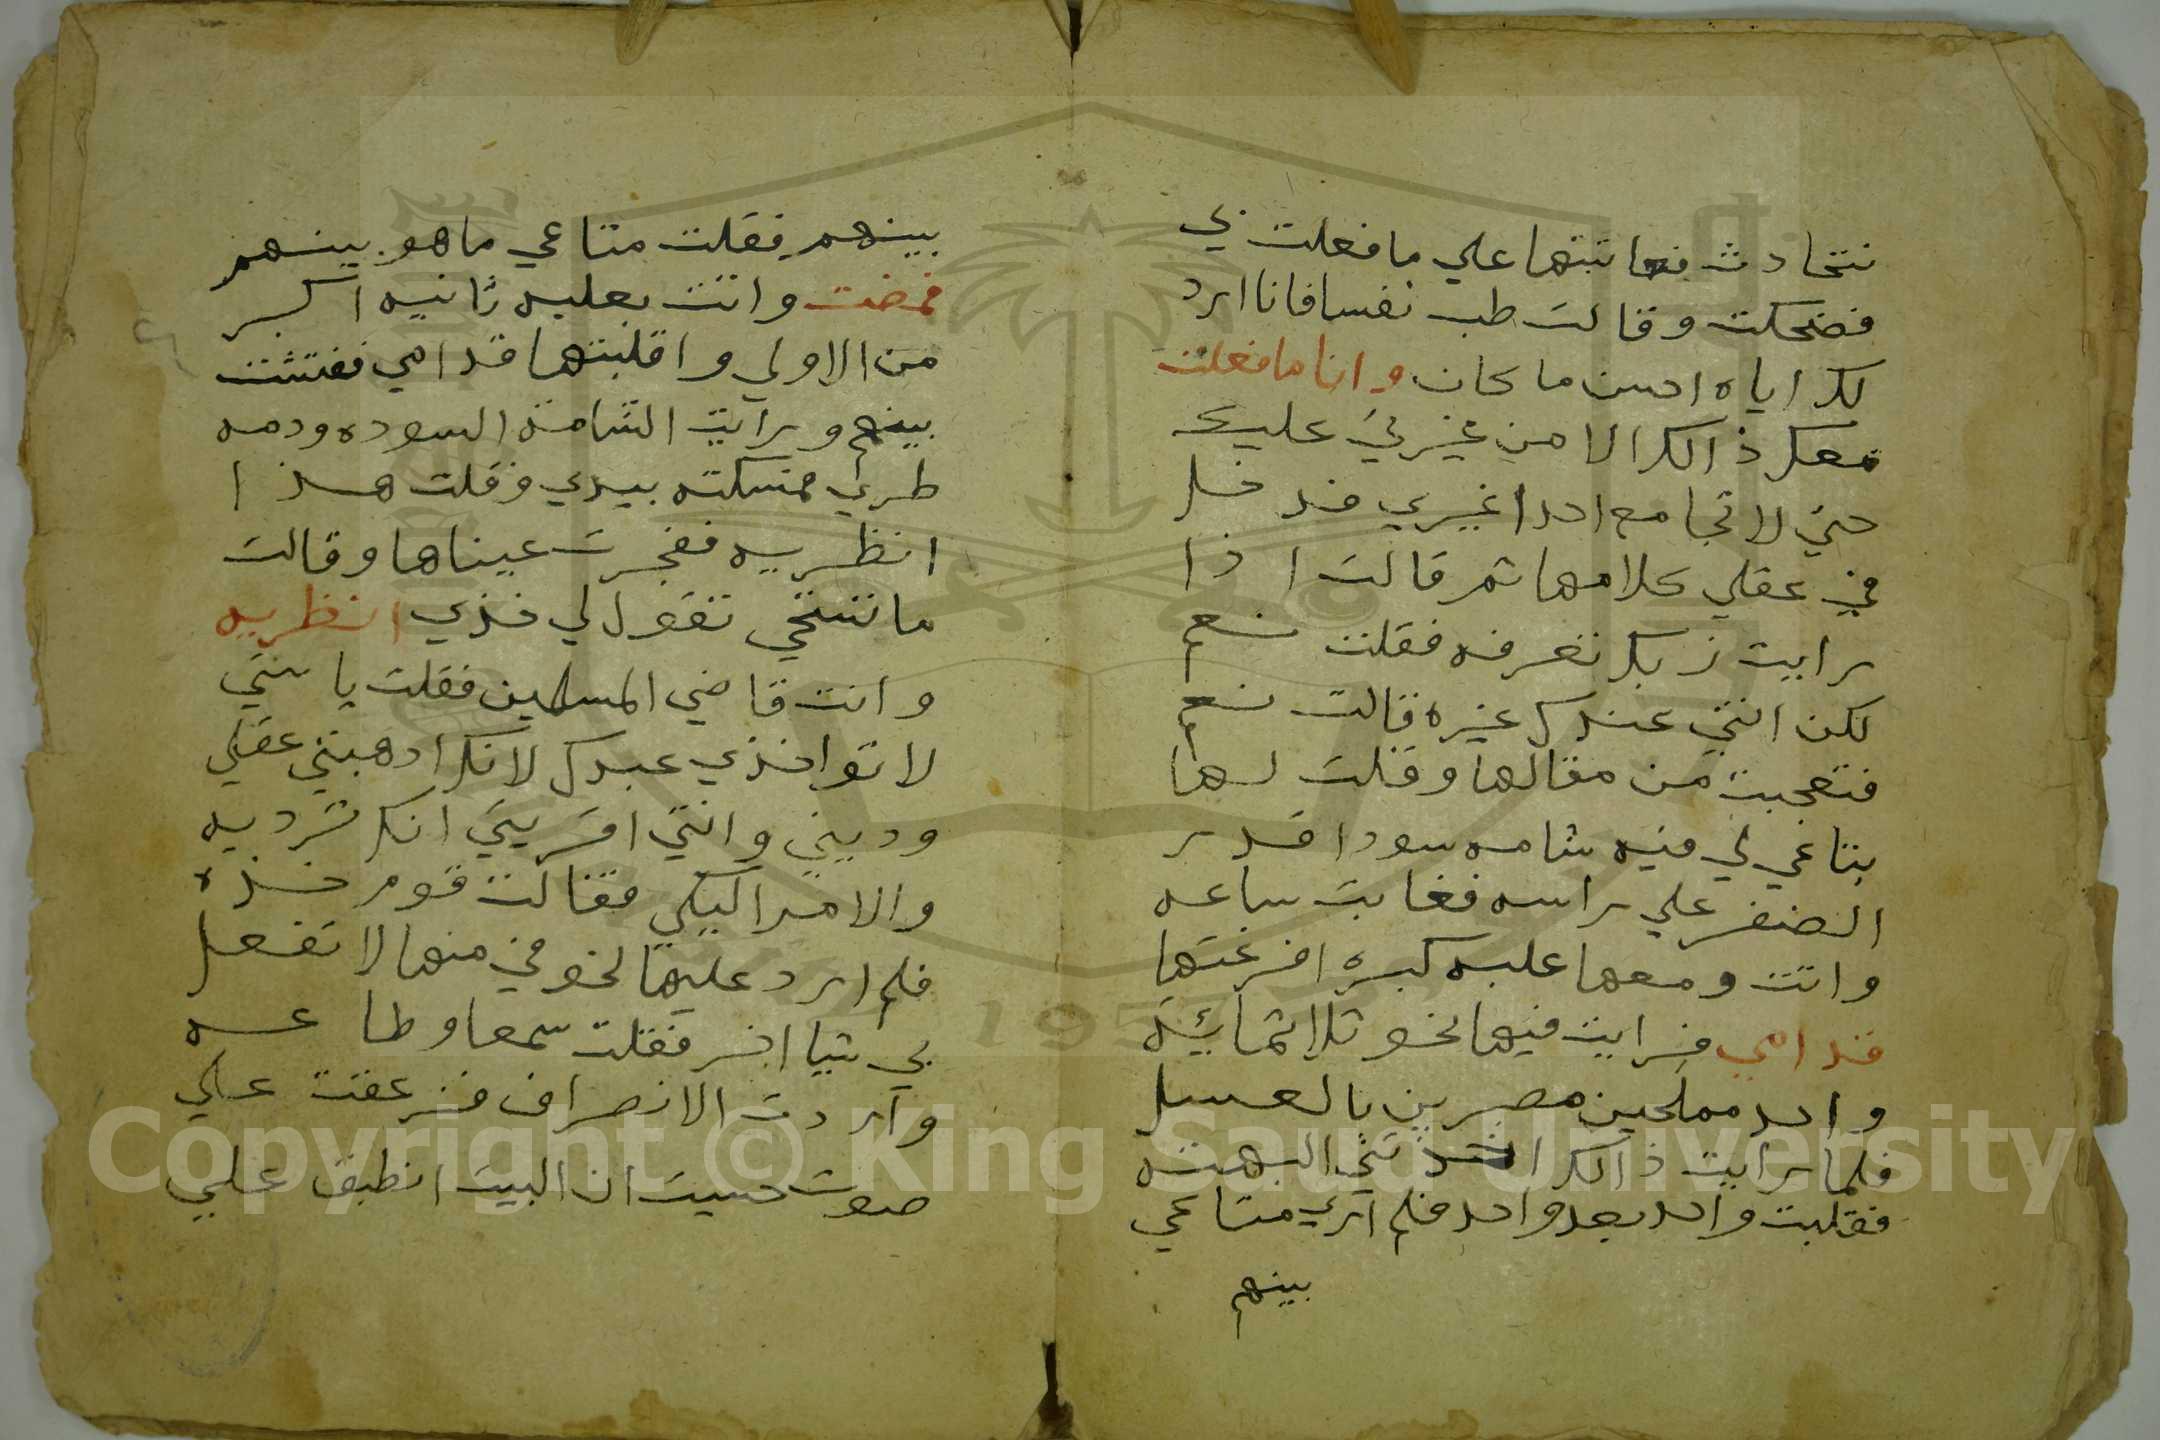 نتحادث فعاتبتها علي ما فعلت بي
فضحكت وقالت طب نفسا فانا ارد
لك اياه احسن ما كان وانا ما فعلت
معك ذالك الا من غيرتي عليك
حتي لا تجامع احدا غيري فدخل
في عقلي كلامها ثم قالت اذا
رايت زبك تعرفه فقلت نعم
لكن انتي عندك غيره قالت نعم
فتعجبت من مقالها وقلت لها
بتاعي لي فيه شامه سودا قدر
الضفر علي راسه فغابت ساعه
واتت ومعها علبه كبيره افرغتها
قدامي فرايت فيها نحو ثلاثمائية
واحد مملحين مصبرين بالعسل
فلما رايت ذالك اخذتني البهته
فقلبت واحد بعد واحد فلم اري متاعي
بينهم
بينهم فقلت متاعي ما هو بينهم
فمضت واتت بعلبه ثانيه اكبر
من الاولي واقلبتها قدامي ففتشت
بينهم ورايت الشامة السوده ودمه
طري فمسكته بيدي وقلت هذا
انظريه ففجرت عيناها وقالت
ما تستحي تقول لي خذي انظريه
وانت قاضي المسلمين فقلت يا ستي
لا تواخذي عبدك لانك ادهبتي عقلي
وديني وانتي اقريتي انك ترديه
والامر اليكي فقالت قوم خذه
فلم ارد عليها لخوفي منها لا تفعل
بي شيا اخر فقلت سمعا وطاعه
واردت الانصراف فزعقت علي
صوت حسيت ان البيت انطبق علي
Copyright © King Saud University
1957